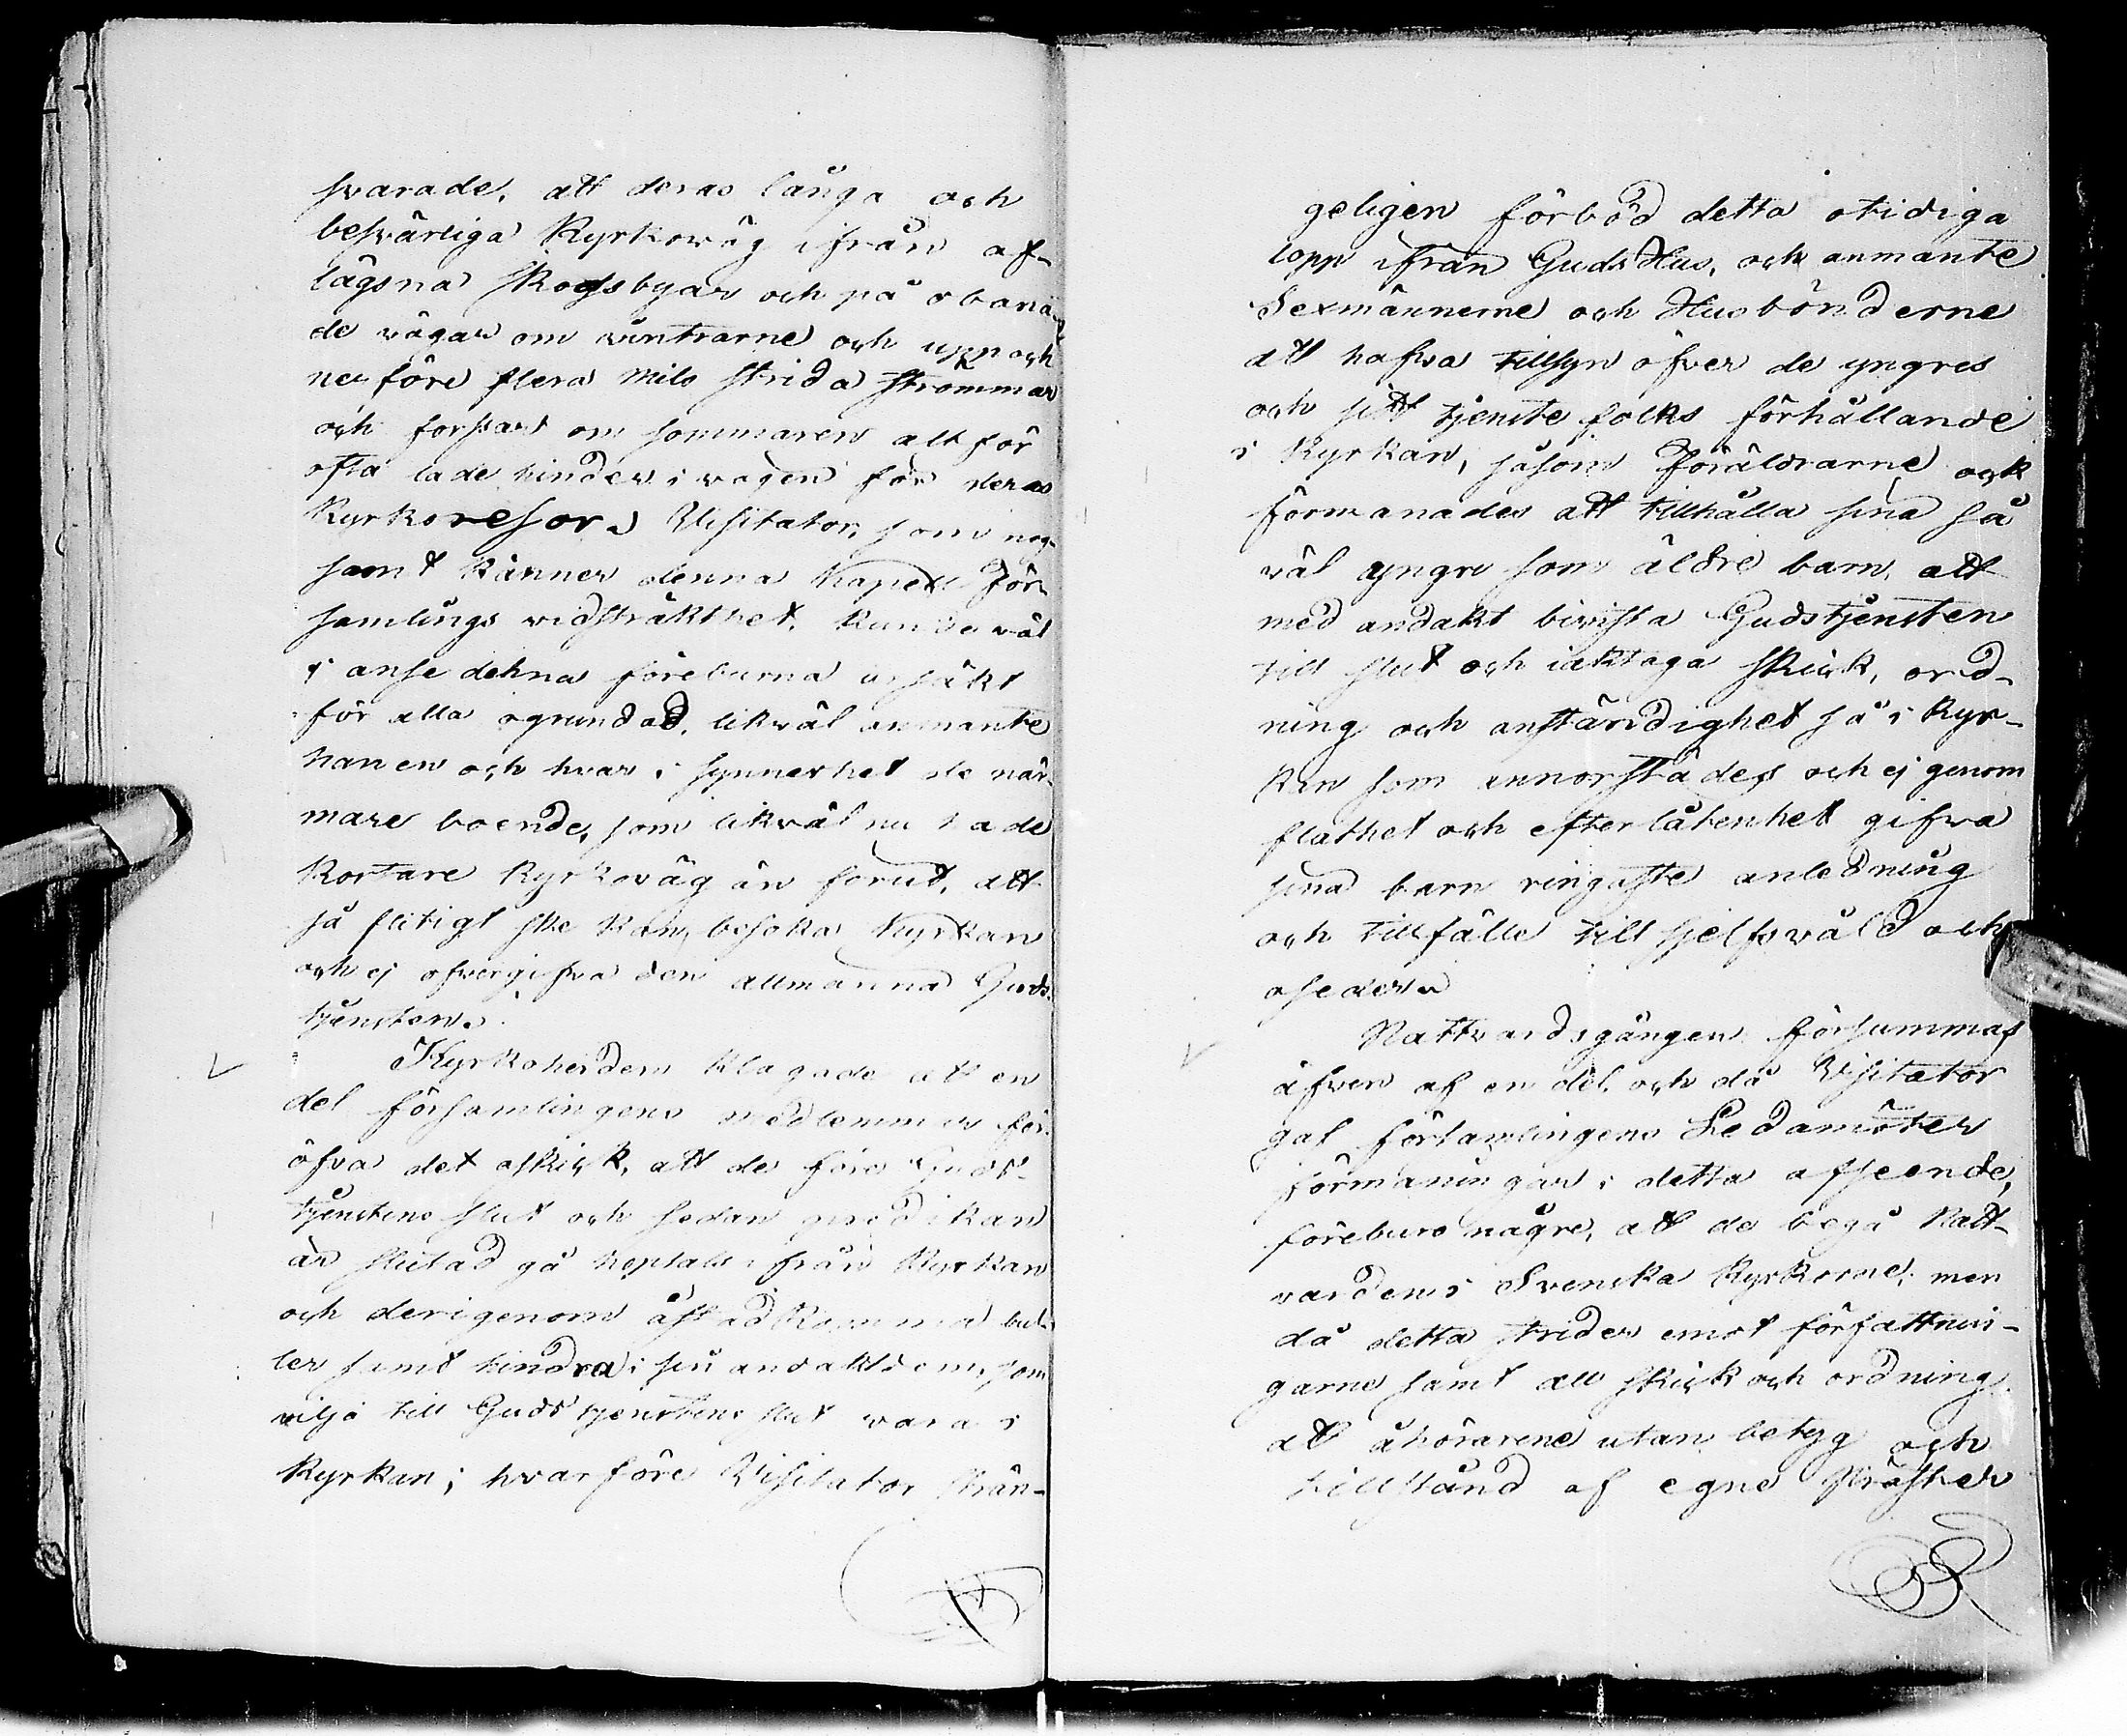 svarade, att deras långa och
besvärliga Kyrkoväg ifrån af-
lägsna Skogsbyar och på obana-
de vägar om vintrarne och upp och
nerföre flera mils strida strömmar
och forssar om sommaren alt för
ofta lade hinder i vägen för deras
Kyrkoresor. Visitator, som nog-
samt känner denna Kapell För-
samlings vidsträkthet, kunde väl
ej anse dehna föreburna orsäkt
för alla ogrundad, likväl anmante
han en och hvar i synnerhet de när-
mare boende, som likväl nu hade
kortare Kyrkoväg än förut, att
så flitigt ske kan, besöka Kyrkan
och ej öfvergifva den allmänna Guds-
tjensten.
Kyrkoherden klagade att en
del församlingens medlemmar för-
öfva det oskick, att de före Guds-
tjenstens slut och sedan predikan
är slutad gå hoptals ifrån Kyrkan
och derigenom åstadkomma bul-
ler samt hindra i sin andakt dem, som
vilja till Gudstjenstens slut vara i
Kyrkan; hvarföre Visitator strän-
geligen förböd detta otidiga
lopp ifrån Guds Hus, och anmante
Sexmännerne och Husbönderne
att hafva tillsyn öfver de yngres
och sitt tjenste folks förhållande
i Kyrkan, såsom Föräldrarne ock
förmanades att tillhålla sina så
väl yngre som äldre barn, att
med andakt bivista Gudstjensten
till slut och iakttaga skick, ord-
ning och anständighet så i Kyr-
kan som annorstädes och ej genom
flathet och efterlåtenhet gifva
sina barn ringaste anledning
och tillfälle till sjelfsvåld och
oseder.
Nattvardsgången försummas
äfven af en del, och då Visitator
gaf församlingens Ledamöter
förmaningar i detta afseende,
föreburo någre, att de begå Natt-
varden i Svenska Kyrkorne; men
då detta strider emot författnin-
garne samt all skick och ordning
att åhörarene utan betyg och
tillstånd af egne Präster